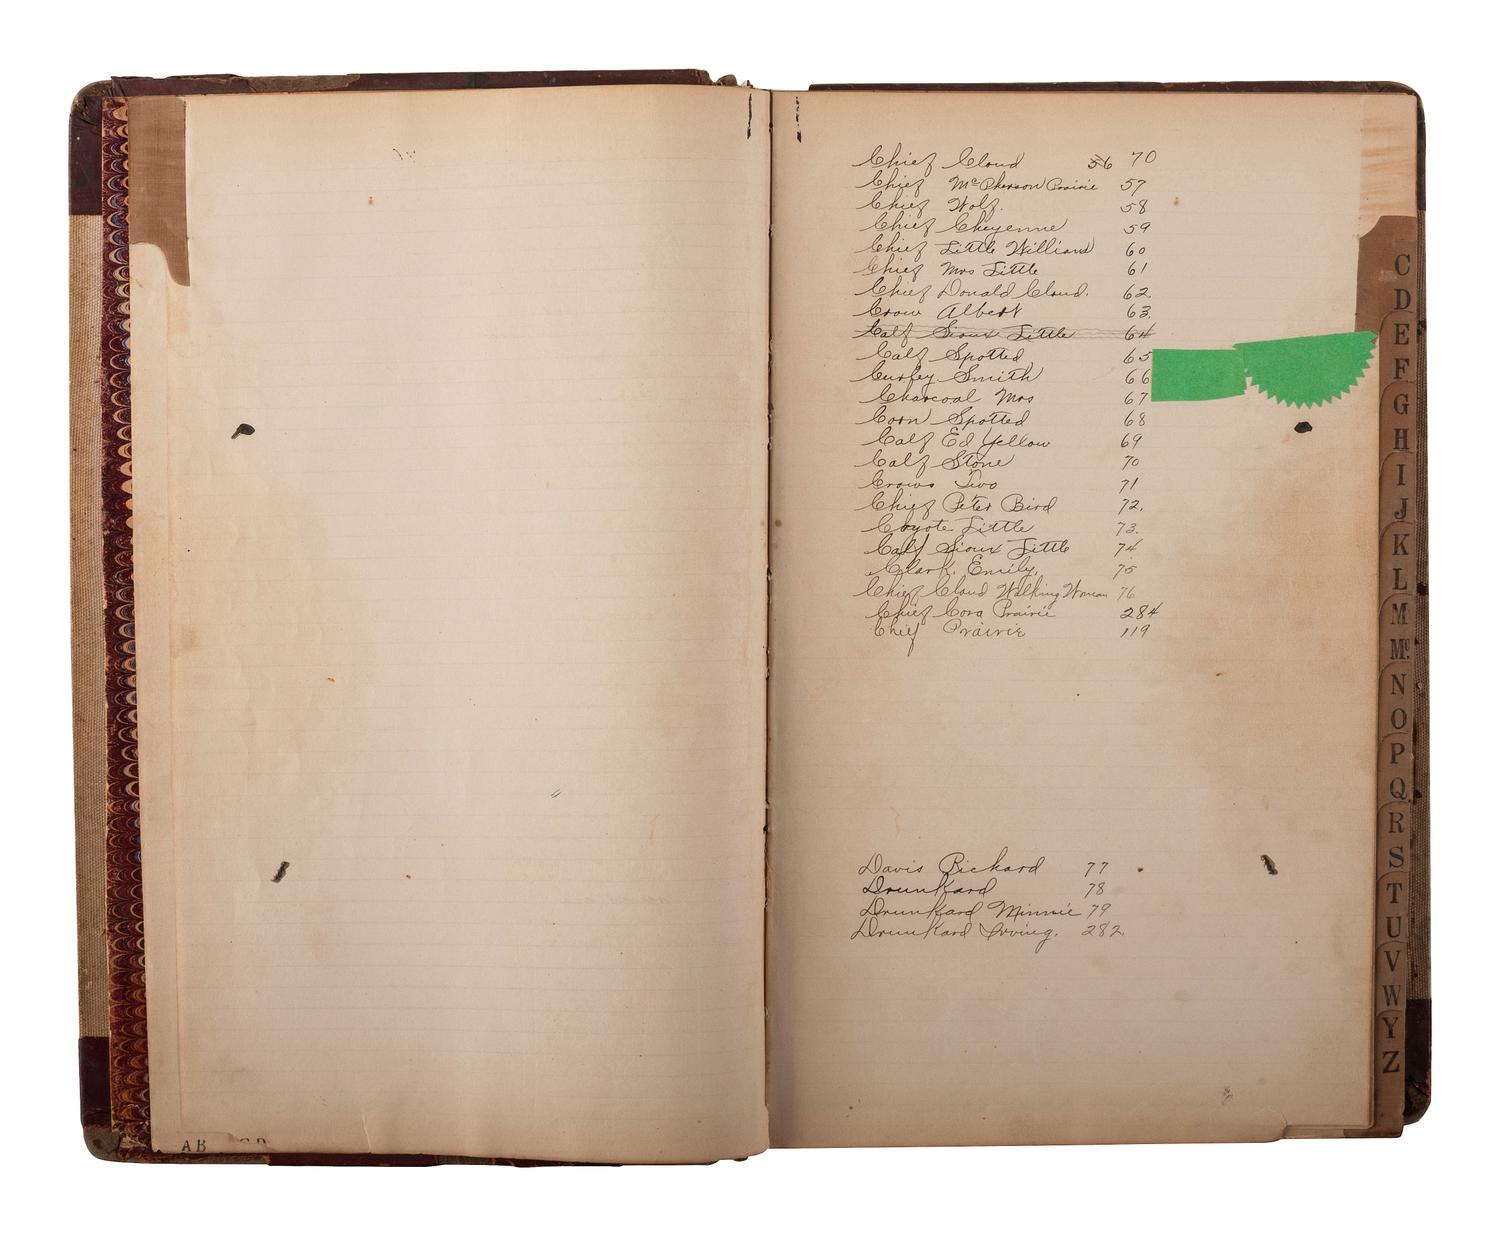 Chief Cloud 56 70
Chief McPherson Prairie 57
Chief Wolf. 58
Chief Cheyenne 59
Chief Little William 60
Chief Mrs Little 61
Chief Donald Cloud. 62.
Crow Albert 63.
Calf Sioux Little 64
Calf Spotted 65
Curley Smith 66
Charcoal Mrs 67
Corn Spotted 68
Calf Ed Yellow 69
Calf Stone 70
Crows Two 71
Chief Peter Bird 72.
Coyote Little 73.
Calf Sioux Little 74
Clark. Emily. 75
Chief Cloud Walking Woman 76
Chief Cora Prairie 284
Chief Prairie 119
Davis Rickard 77
Drunkard 78
Drunkard Minnie 79
Drunkard Irving. 282.
AB
C
D
E
F
G
H
I
J
K
L
M
Mc
N
O
P
Q
R
S
T
U
V
W
Y
Z